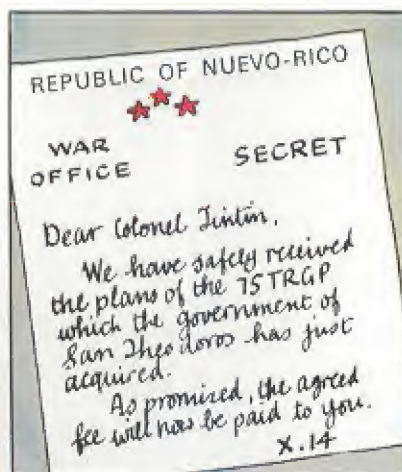 REPUBLIC OF NUEVO-RICO
WAR
OFFICE
SECRET
Dear Colonel Tintin,
We have safely received
the plans of the 75 TRGP
which the government of
San Theodoros has just
acquired.
As promised, the agreed
fee will now be paid to you.
X.14